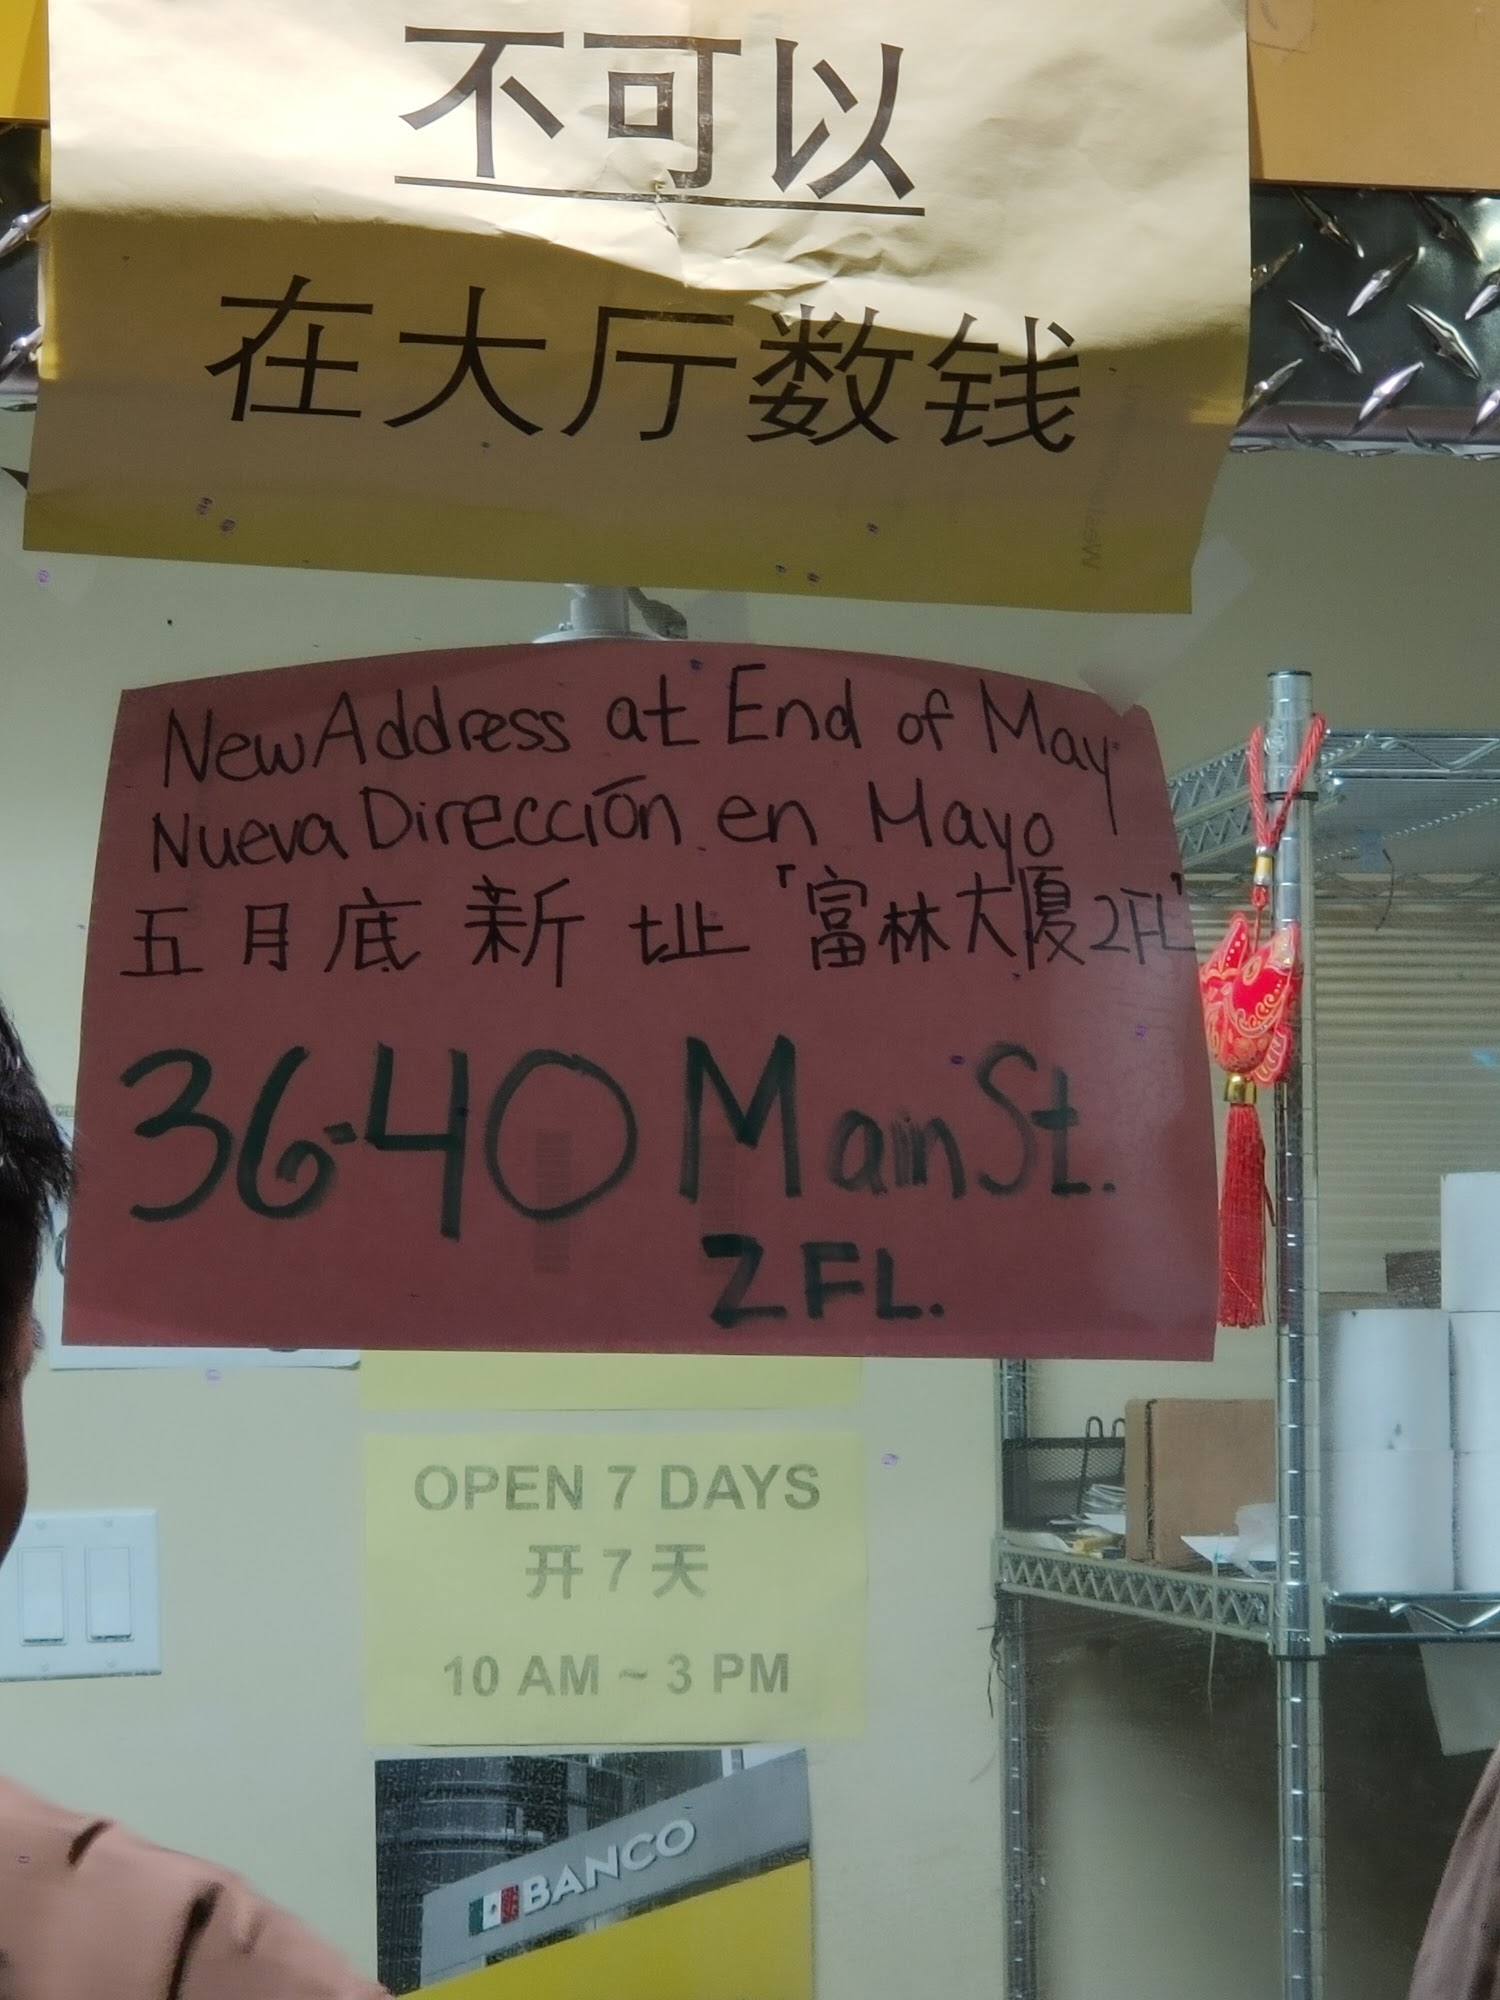 不可以
在大厅数钱
New Address at End of May
Nueva Dirección en Mayo
五月底新址「富林大厦2FL」
36-40 Main St.
2FL.
OPEN 7 DAYS
开 7 天
10 AM ~ 3 PM
BANCO